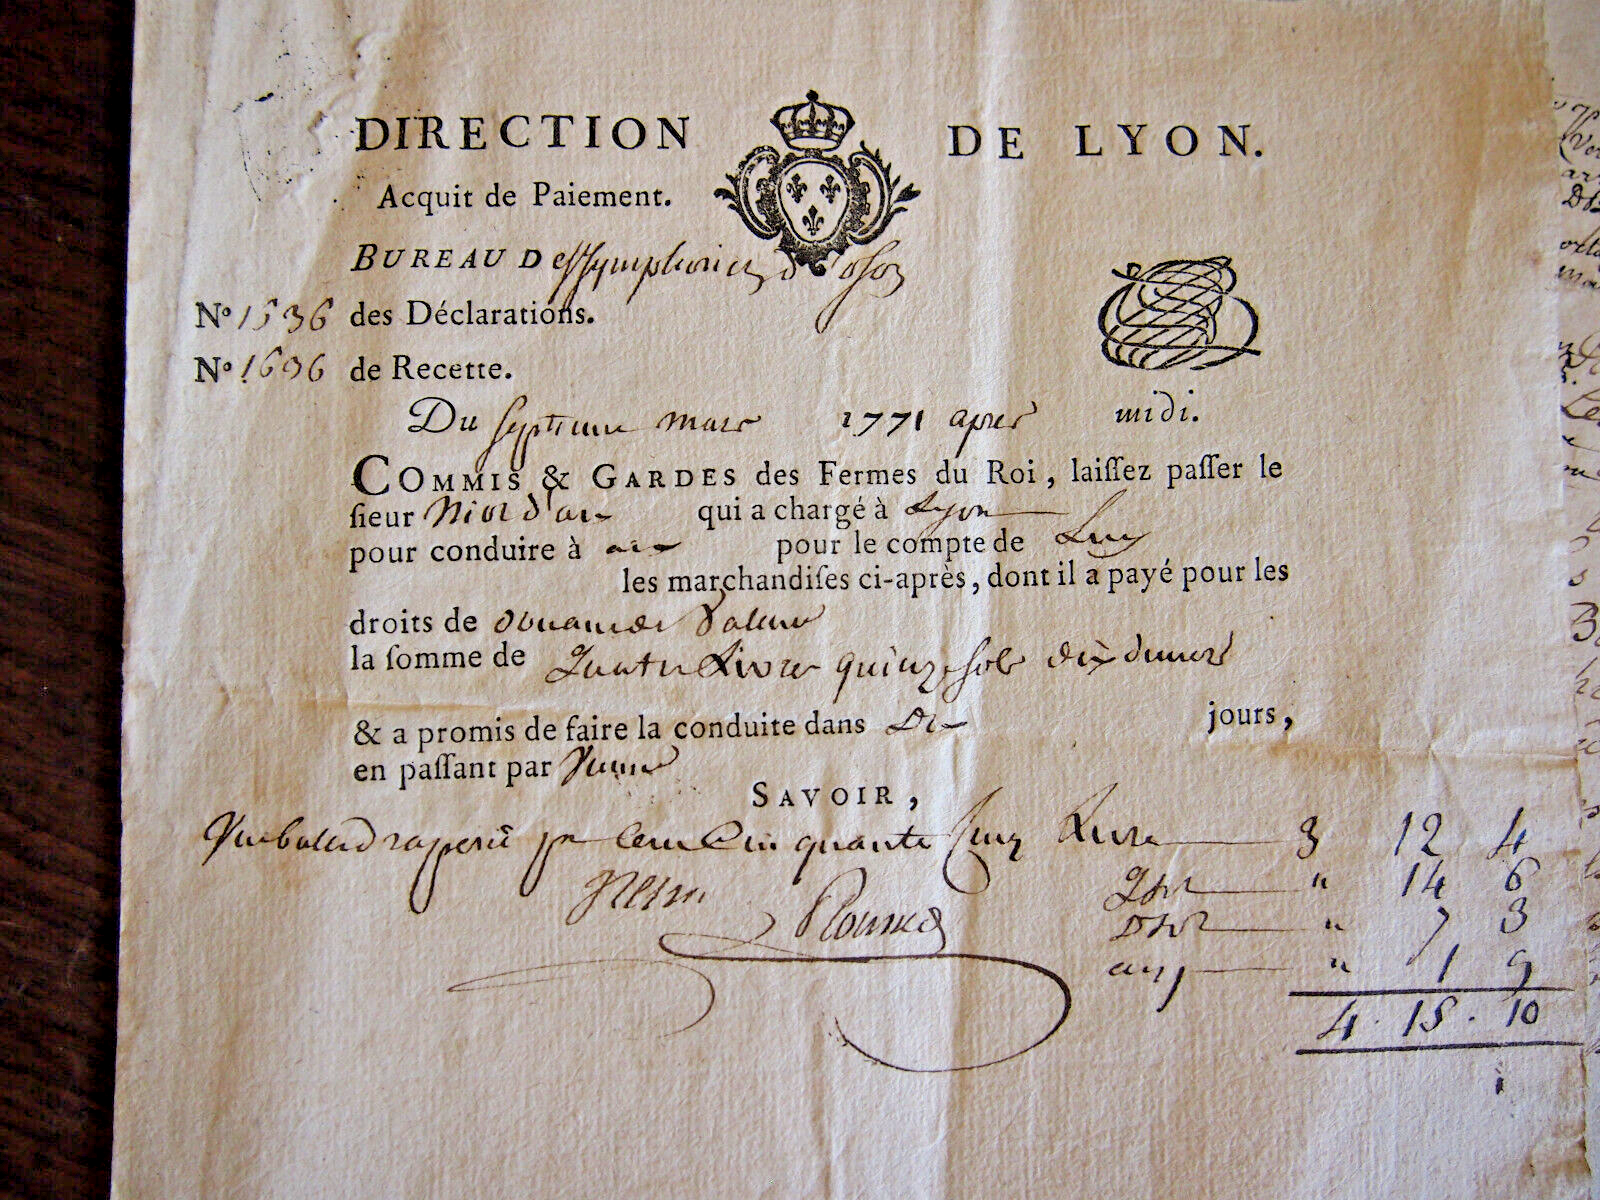 DIRECTION DE LYON.
Acquit de Paiement.
BUREAU De St Symphorien d'oson
No 1536 des Déclarations.
No 1696 de Recette.
Du septieme mars 1771 apres midi.
COMMIS & GARDES des Fermes du Roi, laiſſez paſſer le
ſieur Niol d'aix qui a chargé à Lyon
pour conduire à aix pour le compte de Luy
les marchandiſes ci-après, dont il a payé pour les
droits de douanes Valence
la ſomme de Quatre Livres quinze sols dix deniers
& a promis de faire la conduite dans Dix jours,
en paſſant par Vienne
SAVOIR,
cent Cinquante Cinq Livres 3 12 4
" 14 6
" 7 3
" 1 9
4. 15. 10